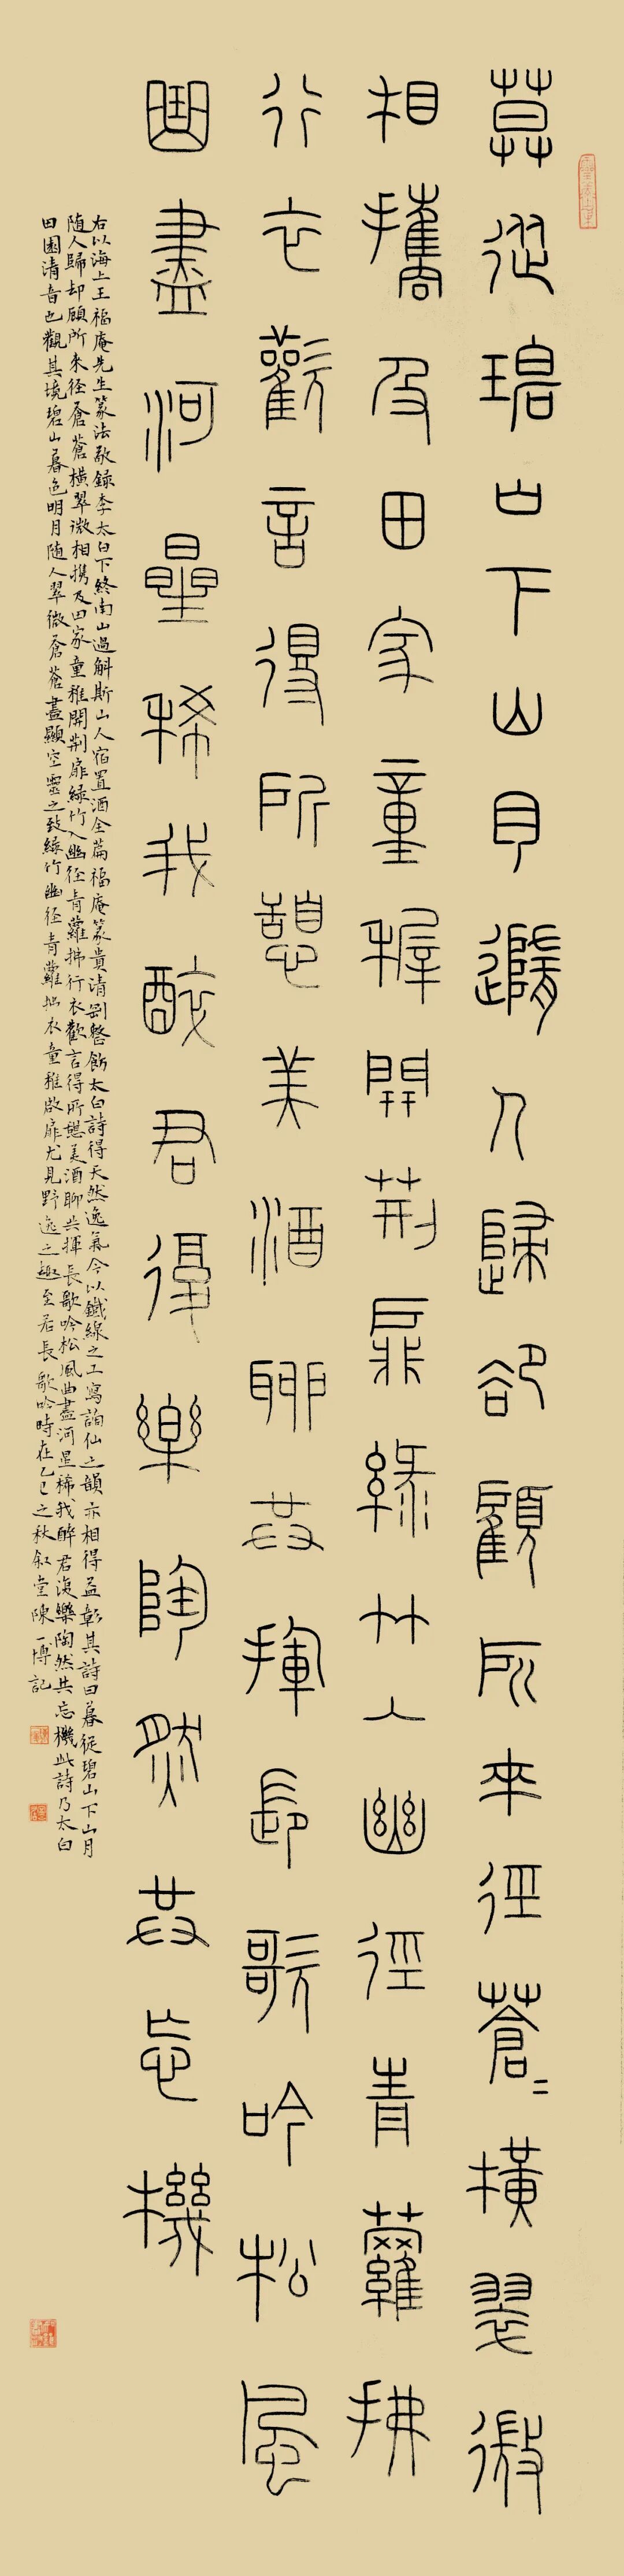 莫從碧山下山月隨人歸卻顧所來徑蒼〻橫翠微
相攜及田家童稚開荊扉綠竹入幽徑青蘿拂
行衣歡言得所憩美酒聊共揮長歌吟松風
曲盡河星稀我醉君復樂陶然共忘機
右以海上王福庵先生篆法敬錄李太白下終南山過斛斯山人宿置酒全篇福庵篆貴清剛整飭太白詩得天然逸氣今以鐵線之工寫謫仙之韻亦相得益彰其詩曰暮從碧山下山月
隨人歸却顧所來徑蒼蒼橫翠微相携及田家童稚開荆扉綠竹入幽徑青蘿拂行衣歡言得所憩美酒聊共揮長歌吟松風曲盡河星稀我醉君復樂陶然共忘機此詩乃太白
田園清音也觀其境碧山暮色明月随人翠微蒼蒼盡顯空靈之致綠竹幽徑青蘿拂衣童稚啟扉尤見野逸之趣至若長歌吟時在乙巳之秋叙堂陳一博記